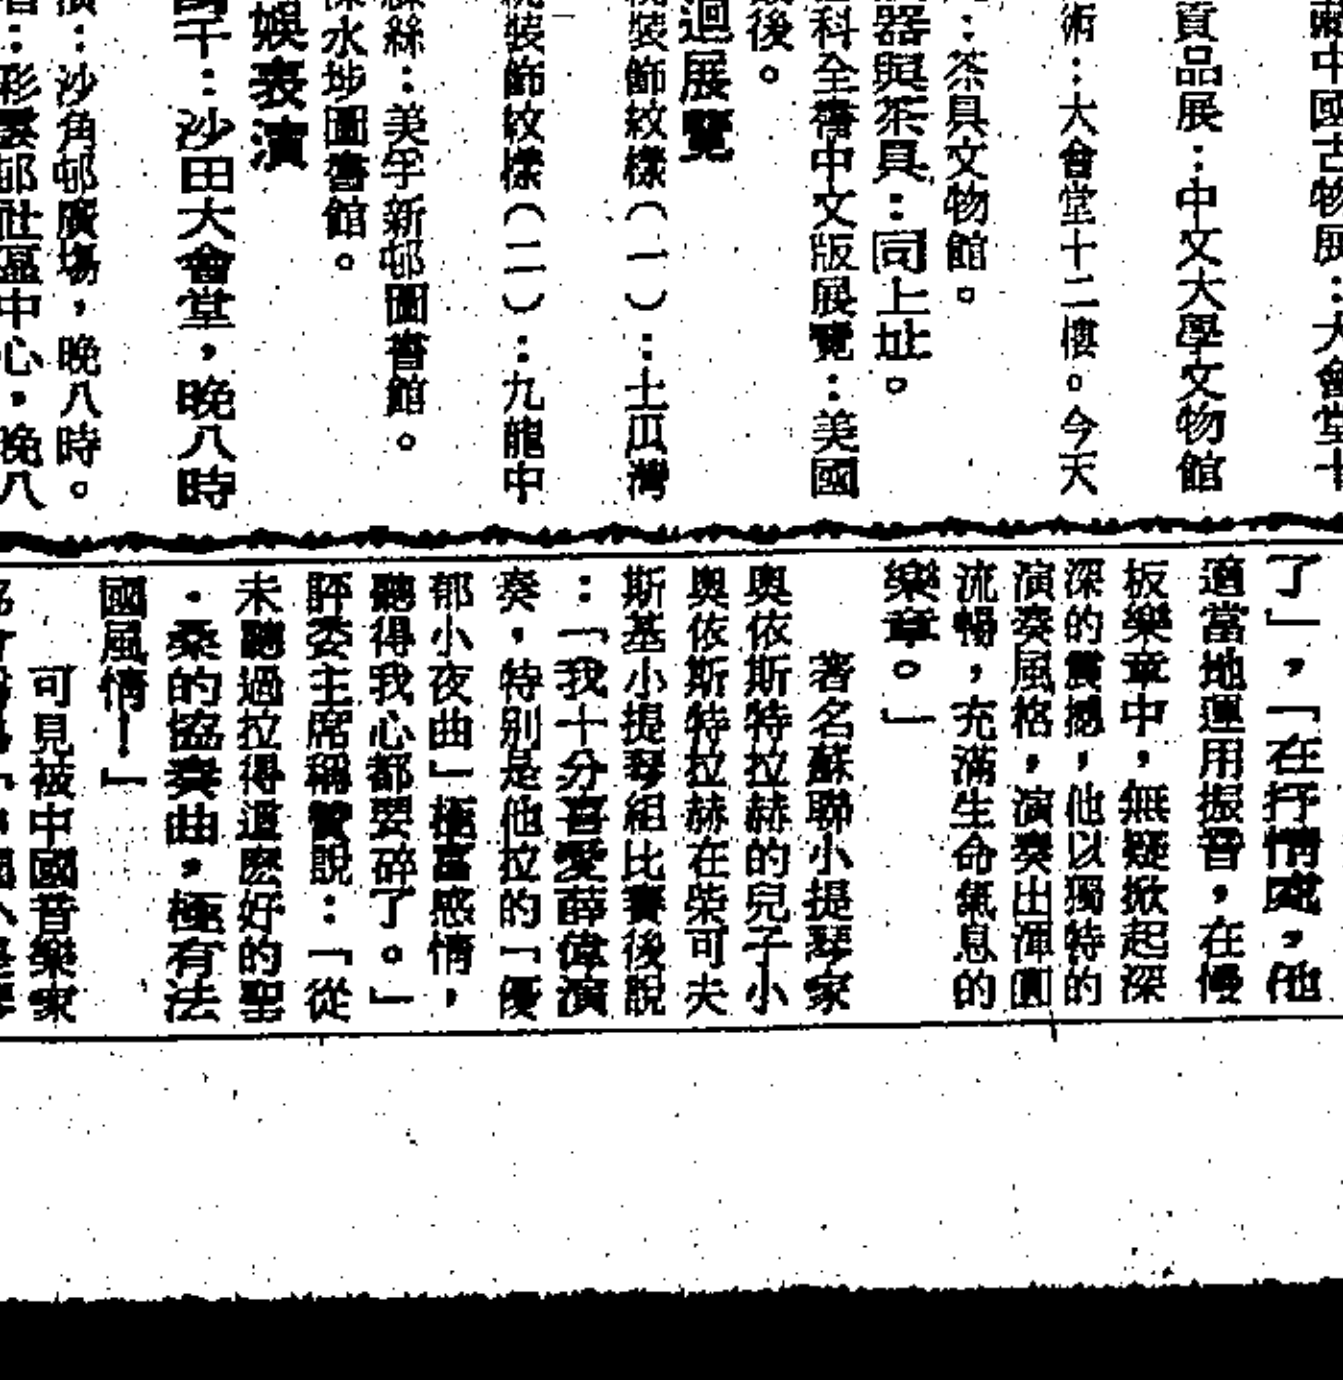 中國古物展：大會堂十
質品展：中文大學文物館
術：大會堂十二樓。今天
：茶具文物館。
器與茶具：同上址。
科全書中文版展覽：美國
後。
迴展覽
裝飾紋樣（一）：土瓜灣
裝飾紋樣（二）：九龍中
絲：美孚新邨圖書館。
水埗圖書館。
娛表演
千：沙田大會堂，晚八時
：沙角邨廣場，晚八時。
：彩雲邨社區中心，晚八
了」，「在抒情處，他
適當地運用振音，在慢
板樂章中，無疑掀起深
深的震撼，他以獨特的
演奏風格，演奏出渾圓
流暢，充滿生命氣息的
樂章。」
著名蘇聯小提琴家
奧依斯特拉赫的兒子小
奧依斯特拉赫在柴可夫
斯基小提琴組比賽後說
：「我十分喜愛薛偉演
奏，特別是他拉的「優
郁小夜曲」極富感情，
聽得我心都要碎了。」
評委主席稱贊說：「從
未聽過拉得這麽好的聖
·桑的協奏曲，極有法
國風情！」
可見被中國音樂家